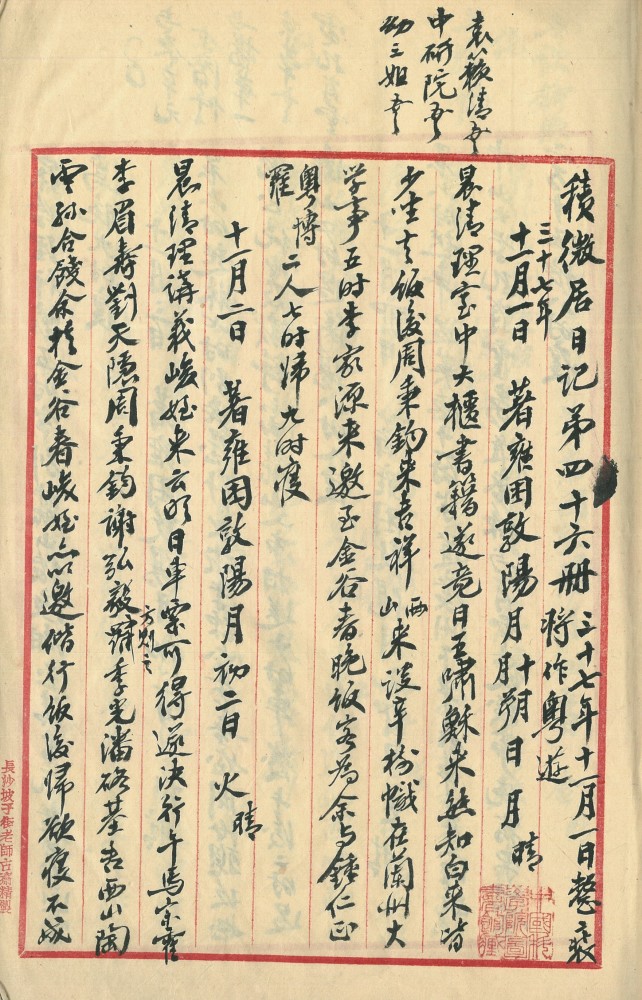 袁簇清书
中研院书
劲三姐书
积微居日记第四十六册 三十七年十一月一日整装
将作粤遊
三十七年
十一月一日 著雍困敦陽月 十月朔日 月 晴
晨清理室中大櫃書籍遂竟日王嘯穌来熊知白来皆
少坐去飯後周秉鈞来吉祥西山来谈辛樹幟在蘭州大
学事五时李家源来邀至金谷春晚饭客為余与鍾仁正
粤博
羅 二人七时歸九时寝
十一月二日 著雍困敦陽月初二日 火 晴
晨清理講義峻姪来云明日車票可得遂决行午馬宗霍
方叔章
李眉壽劉天隱周秉鈞謝弘毅李光潘硌基吉西山陶
雲孙合餞余於金谷春峻姪亦邀偕行饭後歸欲寝不成
長沙坡子街老師古齋精製